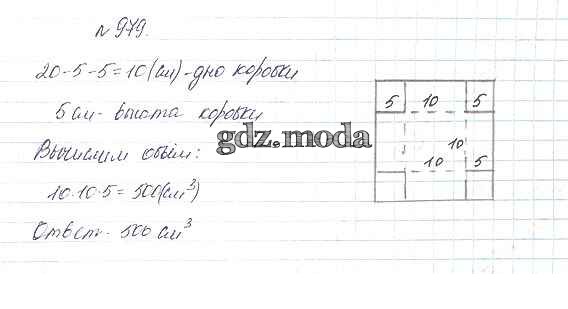 № 979.
20-5-5=10(см)-дно коробки
5 см- высота коробки
Вычислим объём:
10·10·5=500(см³)
Ответ: 500 см³
5 10 5
10
10 5
gdz.moda